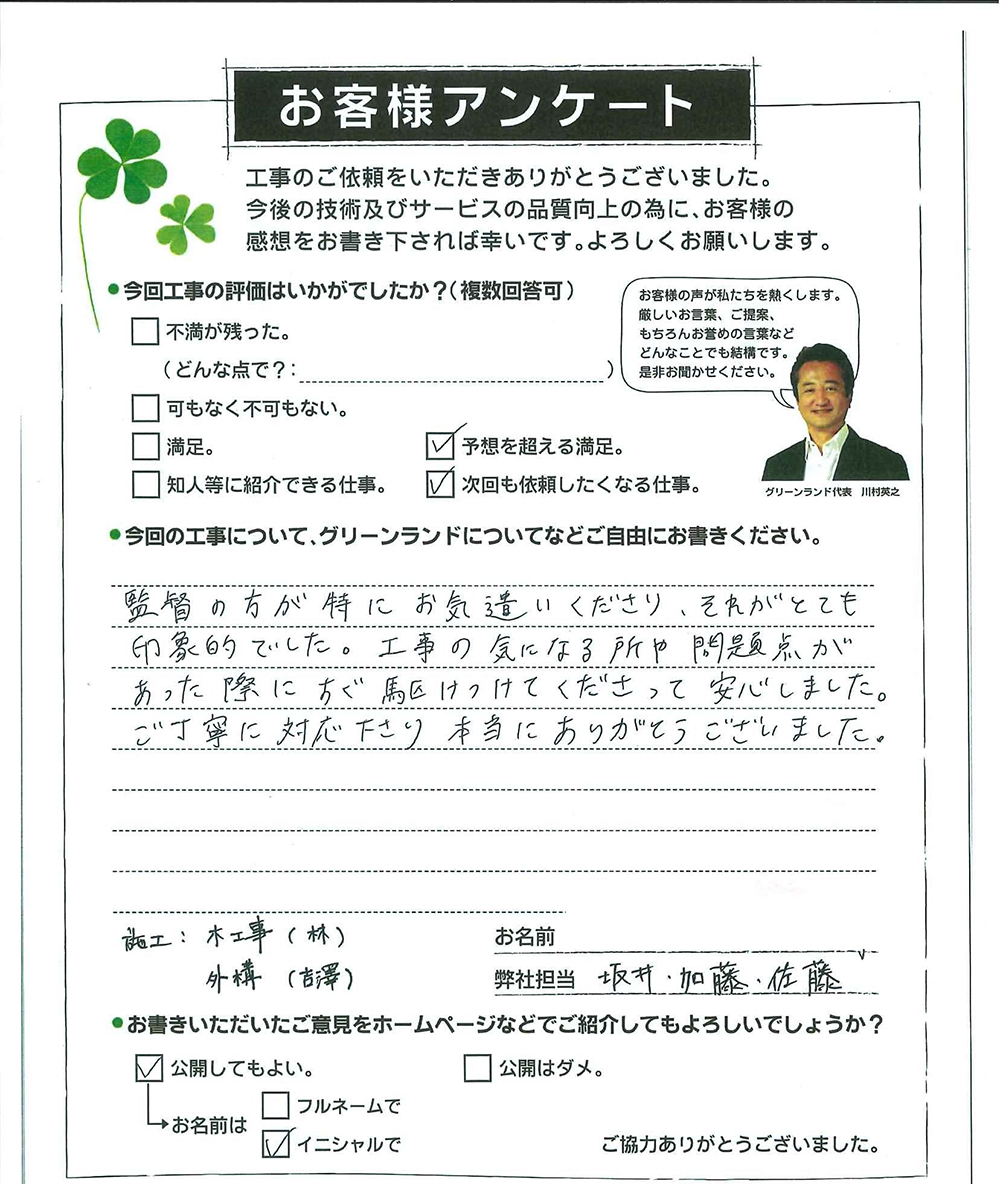 お客様アンケート
工事のご依頼をいただきありがとうございました。
今後の技術及びサービスの品質向上の為に、お客様の
感想をお書き下されば幸いです。よろしくお願いします。
●今回工事の評価はいかがでしたか？（複数回答可）
不満が残った。
（どんな点で？：　）
可もなく不可もない。
満足。
予想を超える満足。
知人等に紹介できる仕事。
次回も依頼したくなる仕事。
お客様の声が私たちを熱くします。
厳しいお言葉、ご提案、
もちろんお誉めの言葉など
どんなことでも結構です。
是非お聞かせください。
グリーンランド代表　川村英之
●今回の工事について、グリーンランドについてなどご自由にお書きください。
監督の方が特にお気遣いくださり、それがとても
印象的でした。工事の気になる所や問題点が
あった際にすぐ駆けつけてくださって安心しました。
ご丁寧に対応下さり本当にありがとうございました。
施工：木工事（林）
外構（吉澤）
お名前
弊社担当　坂井・加藤・佐藤
●お書きいただいたご意見をホームページなどでご紹介してもよろしいでしょうか？
公開してもよい。
公開はダメ。
お名前は
フルネームで
イニシャルで
ご協力ありがとうございました。